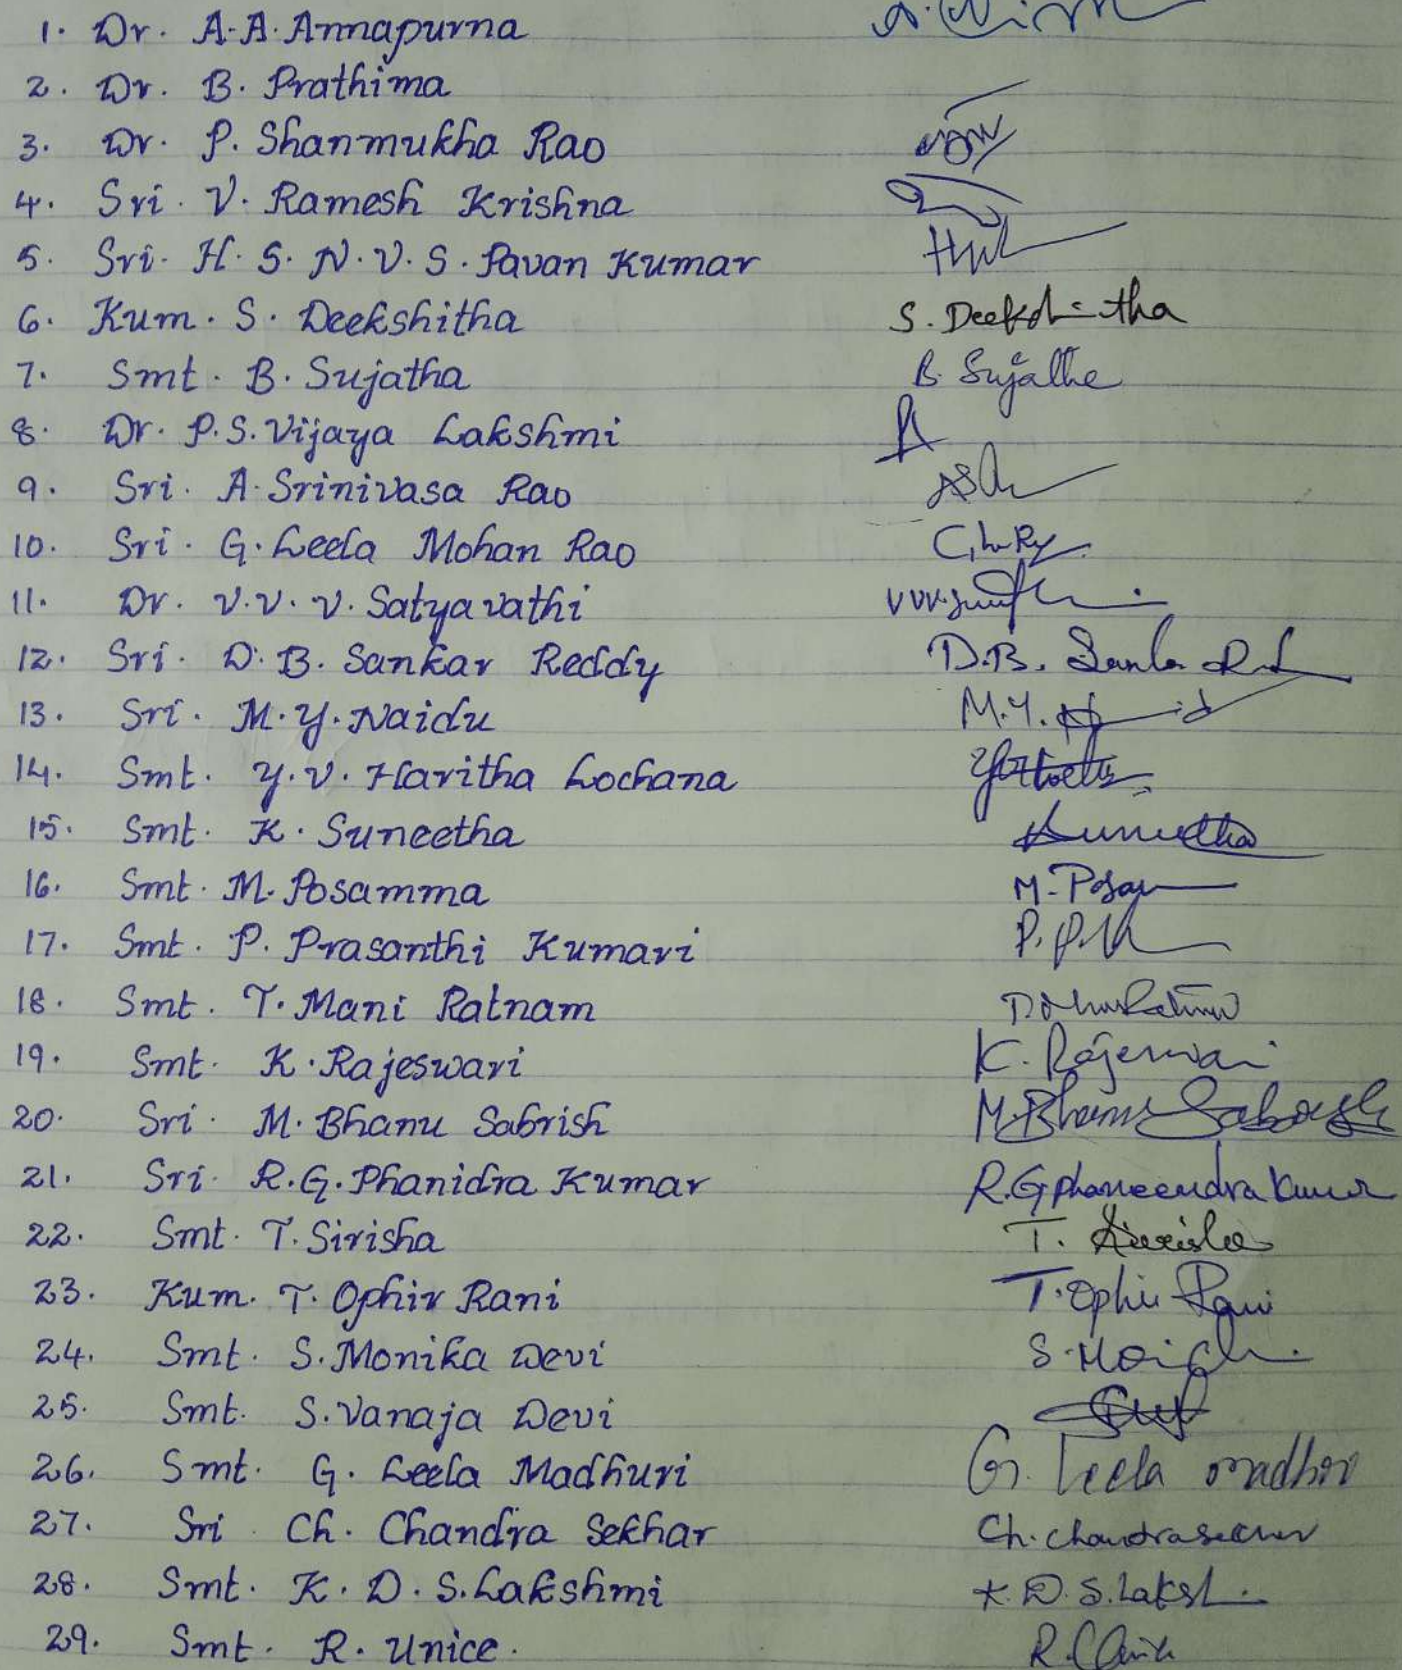 1. Dr. A.A. Annapurna
2. Dr. B. Prathima
3. Dr. P. Shanmukha Rao
4. Sri. V. Ramesh Krishna
5. Sri. H. S. N. V. S. Pavan Kumar
6. Kum. S. Deekshitha S. Deekshitha
7. Smt. B. Sujatha B. Sujatha
8. Dr. P.S. Vijaya Lakshmi
9. Sri. A. Srinivasa Rao
10. Sri. G. Leela Mohan Rao
11. Dr. V. V. V. Satyavathi
12. Sri. D. B. Sankar Reddy D.B.
13. Sri. M. Y. Naidu M.Y.
14. Smt. Y. V. Haritha Lochana
15. Smt. K. Suneetha
16. Smt. M. Posamma M.
17. Smt. P. Prasanthi Kumari P.P.
18. Smt. T. Mani Ratnam
19. Smt. K. Rajeswari K. Rajeswari
20. Sri. M. Bhanu Sabrish M. Bhanu Sabrish
21. Sri. R.G. Phanidra Kumar R.G. Phaneendra Kumar
22. Smt. T. Sirisha T. Sirisha
23. Kum. T. Ophir Rani T. Ophir Rani
24. Smt. S. Monika Devi S.
25. Smt. S. Vanaja Devi
26. Smt. G. Leela Madhuri G. Leela
27. Sri. Ch. Chandra Sekhar Ch. Chandrasekhar
28. Smt. K. D. S. Lakshmi K. D. S.
29. Smt. R. Unice. R.